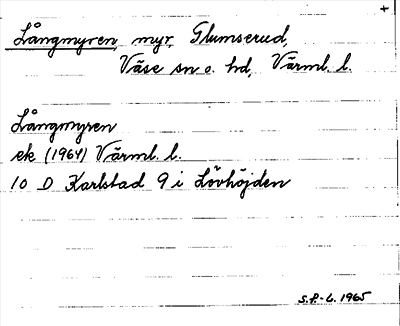 +
Långmyren, myr, Glumserud,
Väse sn o. hd, Värml. l.
Långmyren
ek (1964) Värml. l.
10 D Karlstad 9 i Lövhöjden
S.P-L. 1965